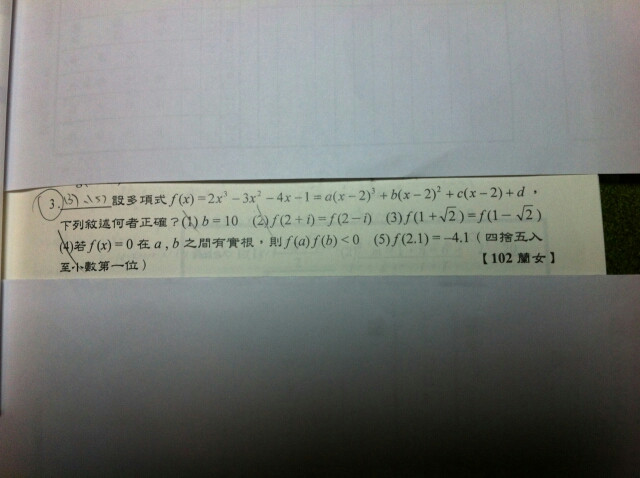 3. (3)、(5) 設多項式 f(x) = 2x³ − 3x² − 4x − 1 = a(x − 2)³ + b(x − 2)² + c(x − 2) + d，
下列敘述何者正確？(1) b = 10 (2) f(2 + i) = f(2 − i) (3) f(1 + √2) = f(1 − √2)
(4)若 f(x) = 0 在 a , b 之間有實根，則 f(a) f(b) < 0 (5) f(2.1) = −4.1（四捨五入
至小數第一位）【102 蘭女】